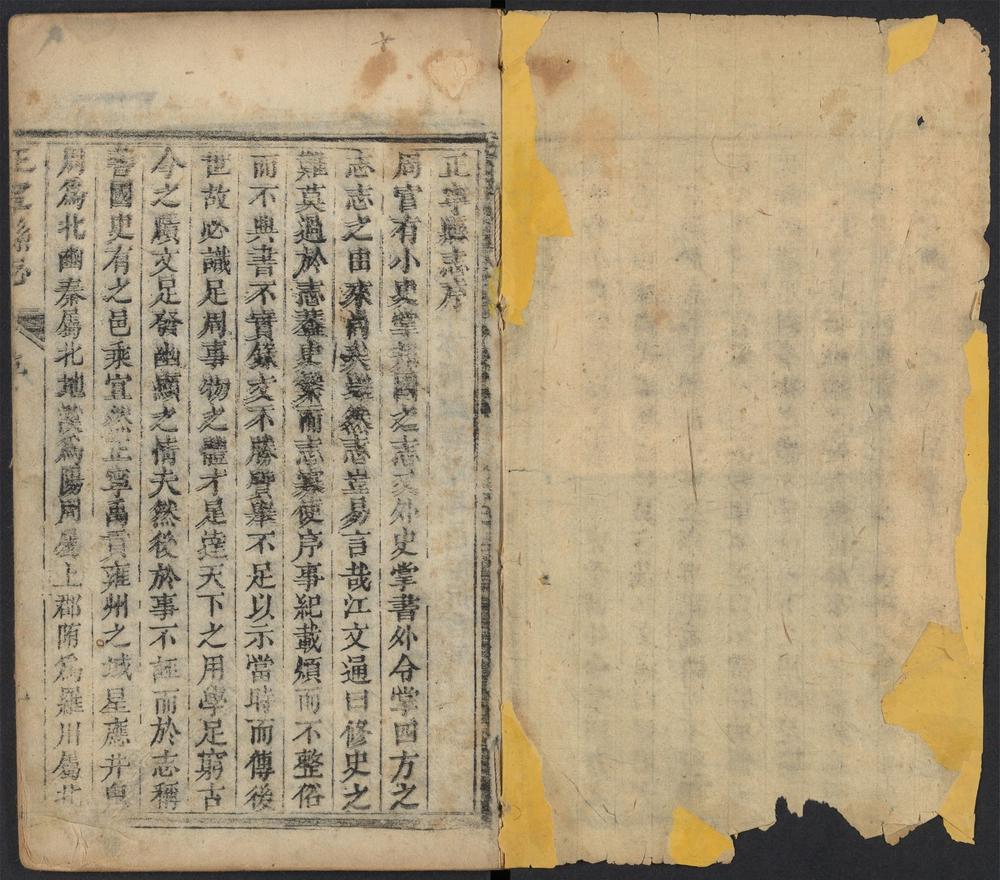 正寧縣志序
周官有小史掌邦國之志又外史掌書外令掌四方之
志志之由來尚矣雖然志豈易言哉江文通曰修史之
難莫過於志蓋史繁而志寡使序事紀載煩而不整俗
而不典書不實錄文不勝質舉不足以示當時而傳後
世故必識足周事物之體才足達天下之用學足窮古
今之賾文足發幽顯之情夫然後於事不誣而於志稱
善國史有之邑乘宜然正寧禹貢雍州之域星應井鬼
周為北豳秦屬北地漢為陽周屬上郡隋為羅川屬北
正寧縣志 序
十